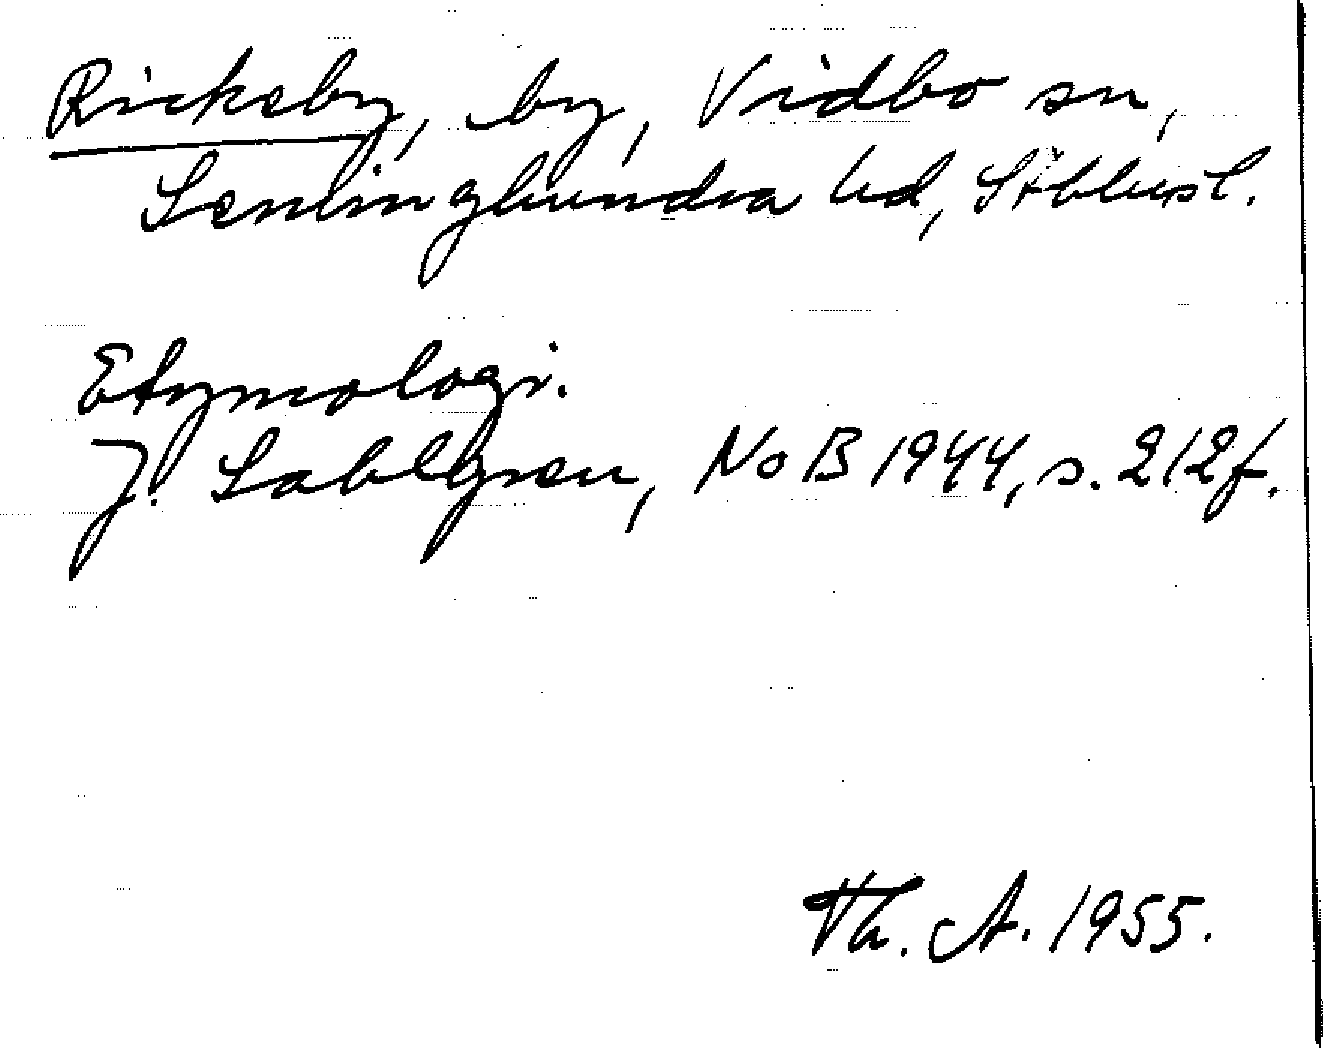 Rickeby, by, Vidbo sn,
Seminghundra hd, Sthlmsl.
Etymologi.
J. Sahlgren, NoB 1944, s. 212f.
Th. A. 1955.